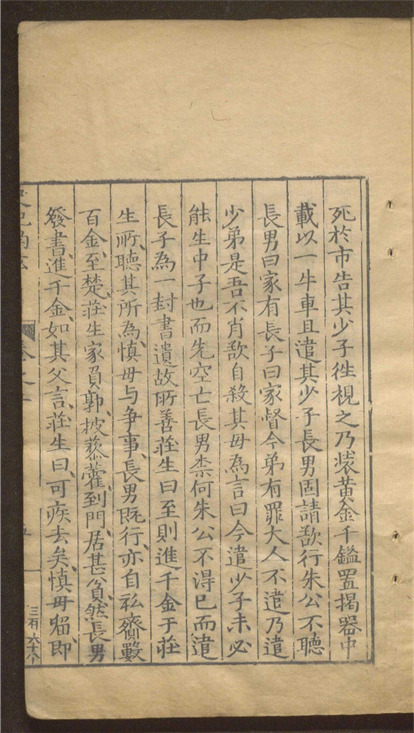 死於市告其少子徃視之乃裝黃金千鎰置褐器中
載以一牛車且遣其少子長男固請欲行朱公不聽
長男曰家有長子曰家督今弟有罪大人不遣乃遣
少弟是吾不肖欲自殺其母為言曰今遣少子未必
能生中子也而先空亡長男柰何朱公不得已而遣
長子為一封書遺故所善莊生曰至則進千金于莊
生所聽其所為慎毋与争事長男既行亦自私齎數
百金至楚莊生家負郭披藜藿到門居甚貧然長男
發書進千金如其父言莊生曰可疾去矣慎毋留即